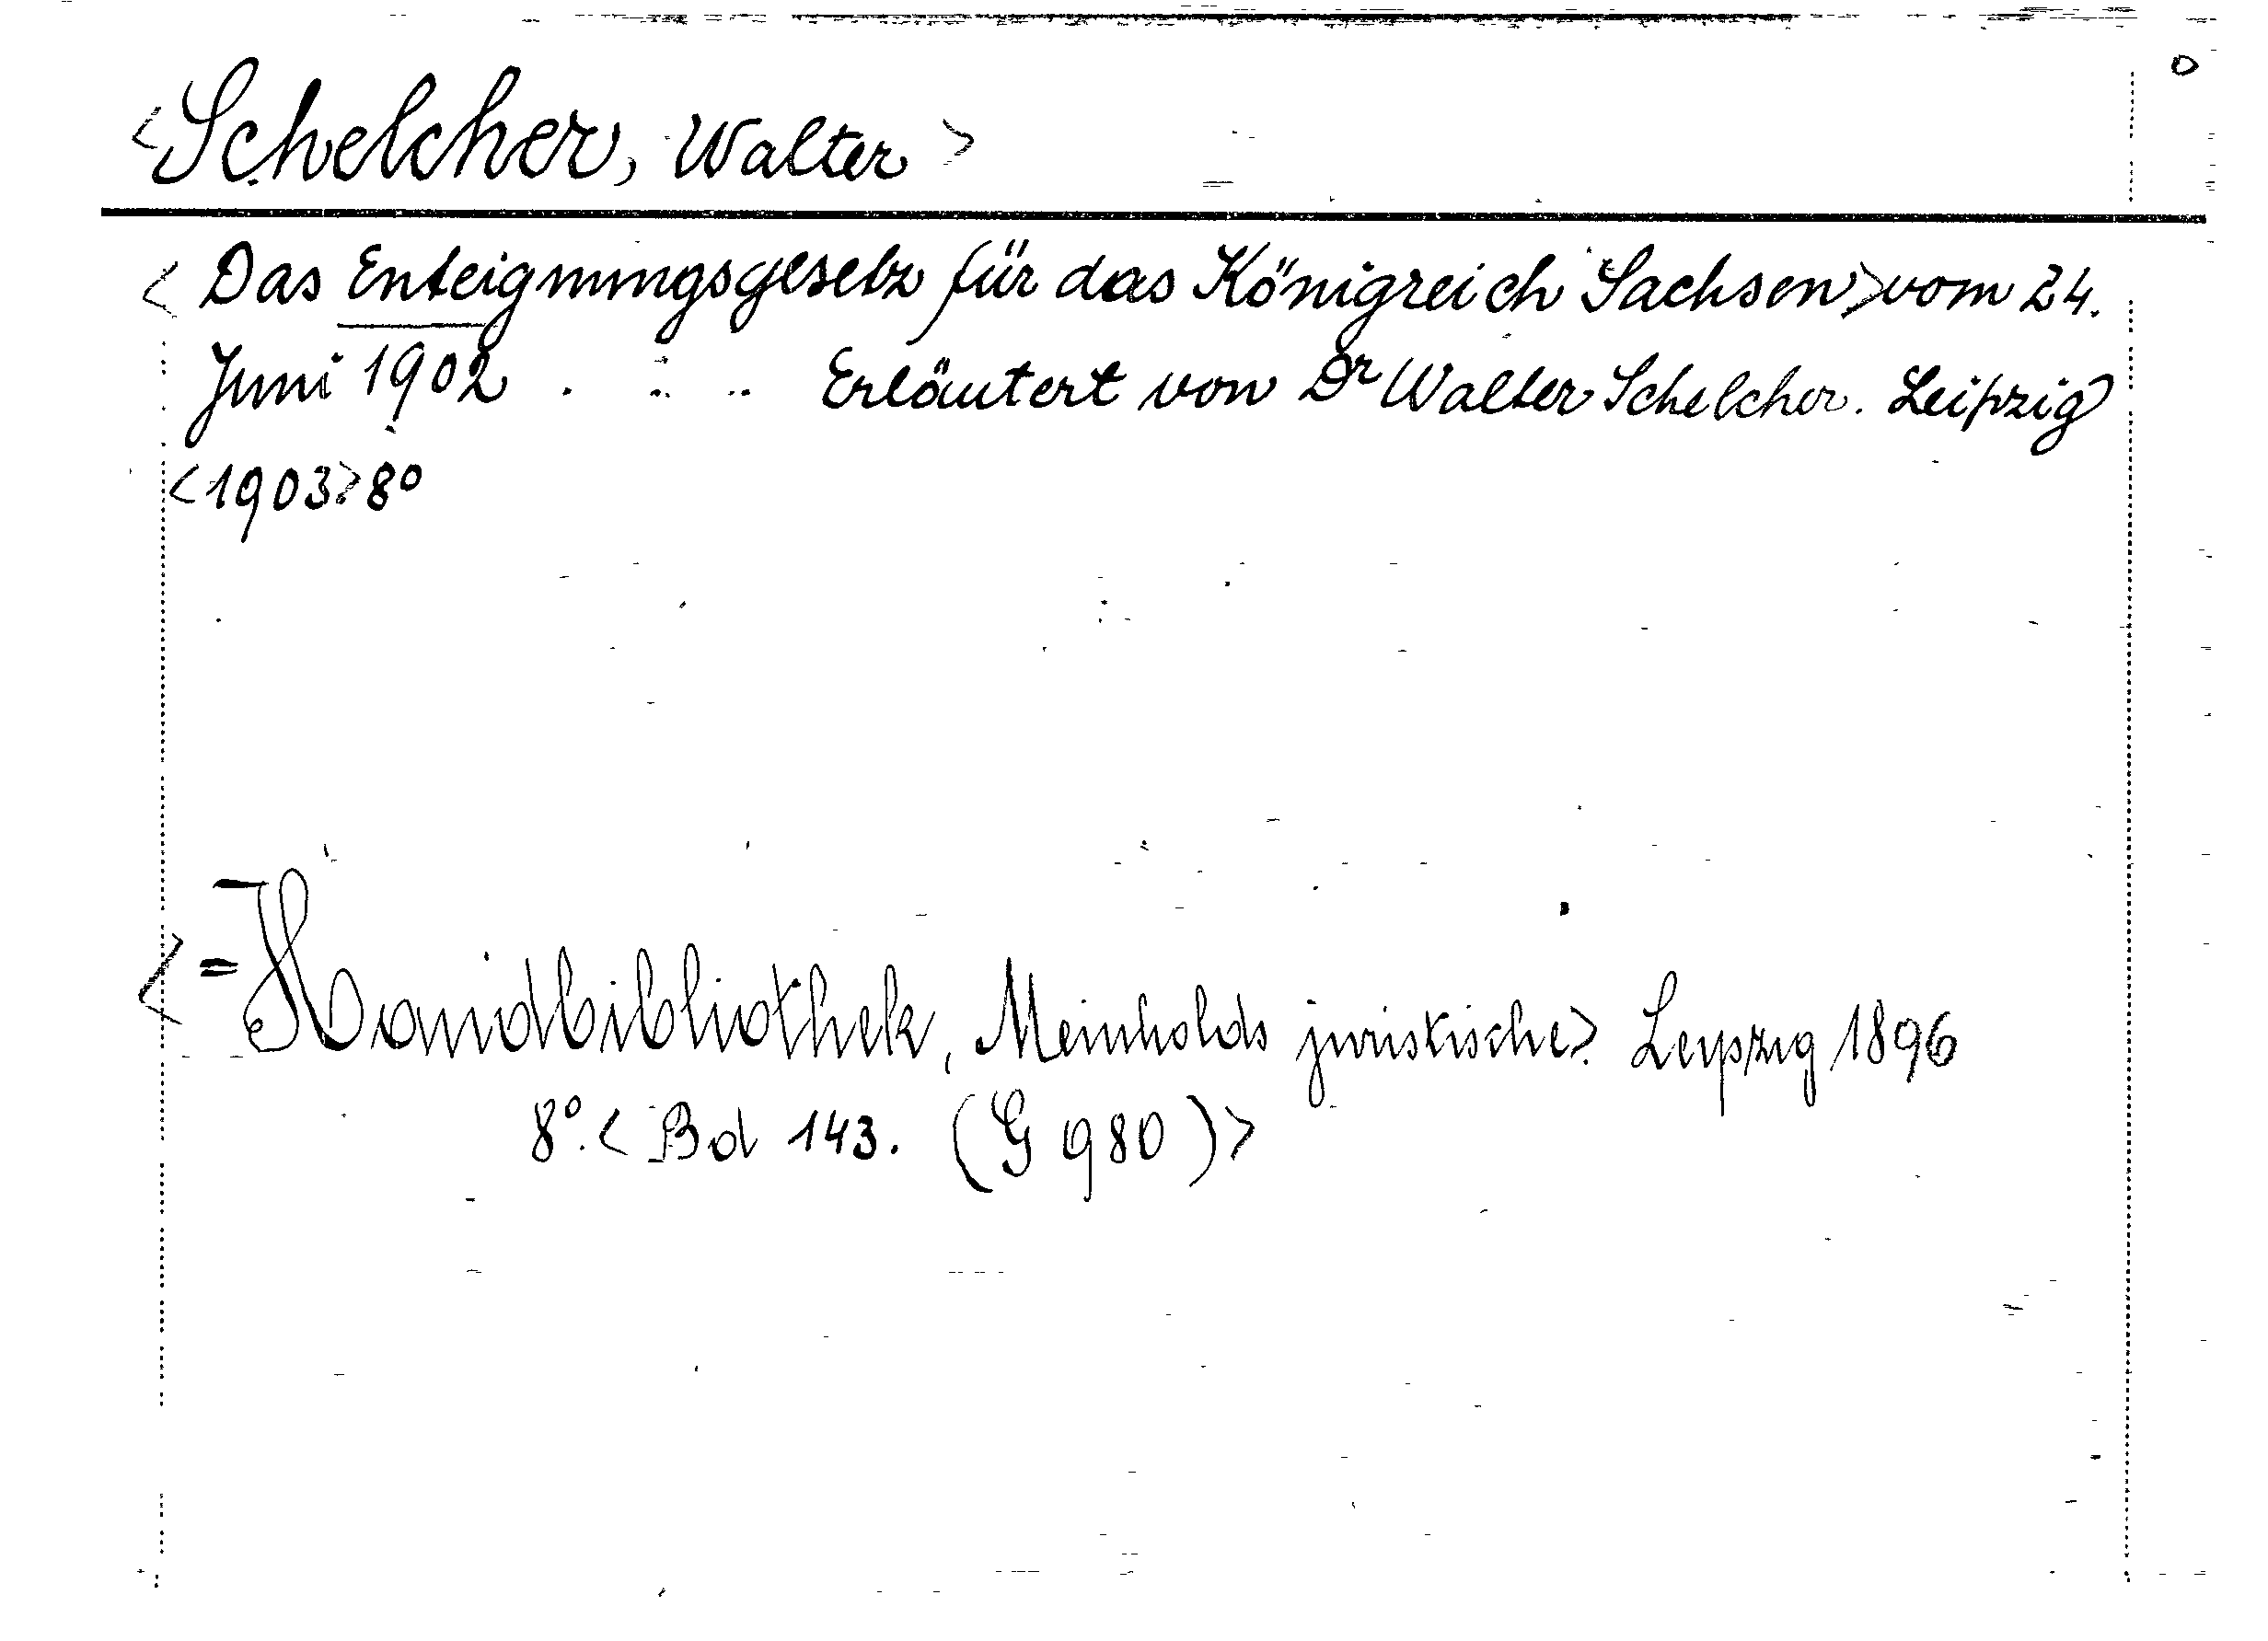 <Schelcher, Walter>
<Das Enteignungsgesetz für das Königreich Sachsen> vom 24.
Juni 1902 . . . Erläutert von Dr Walter Schelcher. Leipzig
<1903> 8°
<= Handbibliothek, Meinholds juristische> Leipzig 1896
8°. <Bd 143. (G 980)>